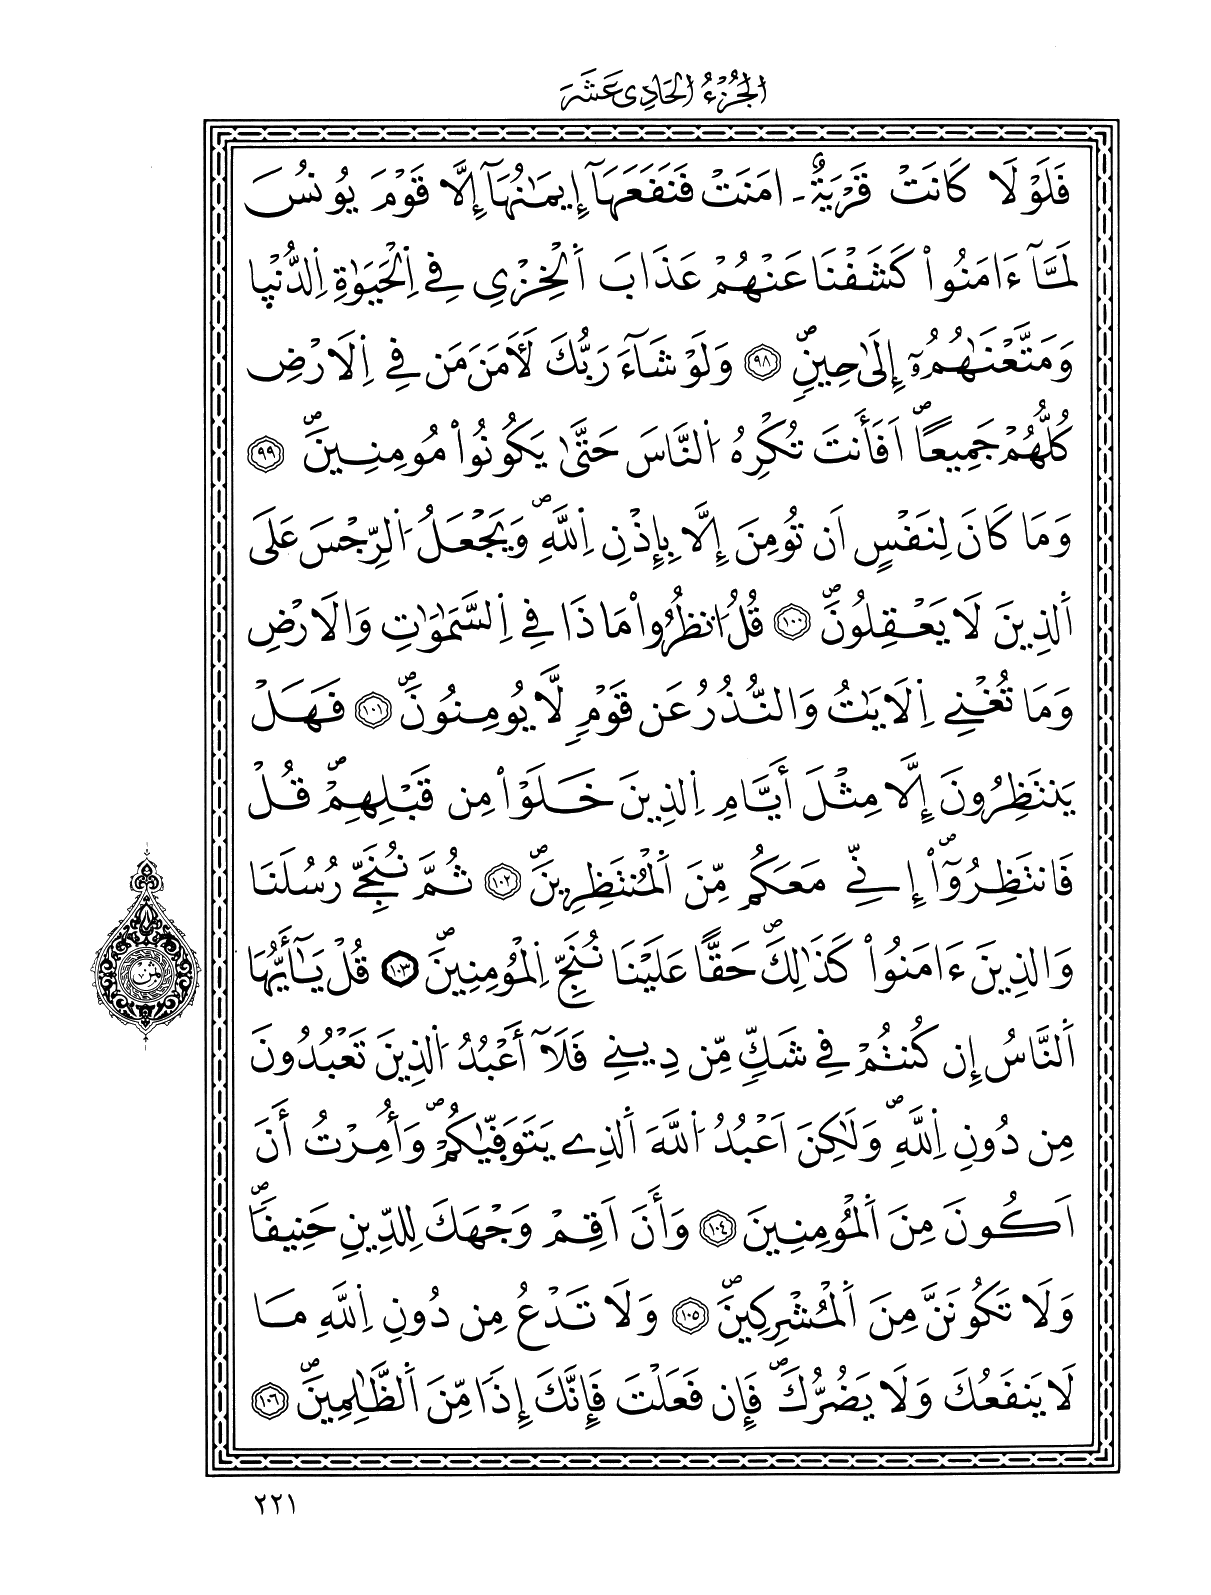 الجُزْءُ الحَادِي عَشَرَ
فَلَوْلَا كَانَتْ قَرْيَةٌ ـ امَنَتْ فَنَفَعَهَآ إِيمَٰنُهَآ إِلَّا قَوْمَ يُونُسَ
لَمَّآ ءَامَنُواْ كَشَفْنَا عَنْهُمْ عَذَابَ اَلْخِزْيِ فِے اِلْحَيَوٰةِ اِلدُّنْيِا
وَمَتَّعْنَٰهُمُۥٓ إِلَىٰ حِينٖۖ ٩٨ وَلَوْ شَآءَ رَبُّكَ لَأٓمَنَ مَن فِے اِلَارْضِ
كُلُّهُمْ جَمِيعاًۖ اَفَأَنتَ تُكْرِهُ اُلنَّاسَ حَتَّىٰ يَكُونُواْ مُومِنِينَۖ ٩٩
وَمَا كَانَ لِنَفْسٍ اَن تُومِنَ إِلَّا بِإِذْنِ اِللَّهِۖ وَيَجْعَلُ اُلرِّجْسَ عَلَى
اَلذِينَ لَا يَعْقِلُونَۖ ١٠٠ قُلُ اُنظُرُواْ مَاذَا فِے اِلسَّمَٰوَٰتِ وَالَارْضِ
وَمَا تُغْنِے اِلَايَٰتُ وَالنُّذُرُ عَن قَوْمٖ لَّا يُومِنُونَۖ ١٠١ فَهَلْ
يَنتَظِرُونَ إِلَّا مِثْلَ أَيَّامِ اِلذِينَ خَلَوْاْ مِن قَبْلِهِمْۖ قُلْ
فَانتَظِرُوٓاْۖ إِنِّے مَعَكُم مِّنَ اَلْمُنتَظِرِينَۖ ١٠٢ ثُمَّ نُنَجِّے رُسُلَنَا
وَالذِينَ ءَامَنُواْ كَذَٰلِكَۖ حَقّاً عَلَيْنَا نُنَجِّ اِلْمُومِنِينَۖ ١٠٣ قُلْ يَٰٓأَيُّهَا
اَلنَّاسُ إِن كُنتُمْ فِے شَكّٖ مِّن دِينِے فَلَآ أَعْبُدُ اُلذِينَ تَعْبُدُونَ
مِن دُونِ اِللَّهِۖ وَلَٰكِنَ اَعْبُدُ اُللَّهَ اَلذِے يَتَوَفّ۪يٰكُمْۖ وَأُمِرْتُ أَنَ
اَكُونَ مِنَ اَلْمُومِنِينَ ١٠٤ وَأَنَ اَقِمْ وَجْهَكَ لِلدِّينِ حَنِيفاًۖ
وَلَا تَكُونَنَّ مِنَ اَلْمُشْرِكِينَۖ ١٠٥ وَلَا تَدْعُ مِن دُونِ اِللَّهِ مَا
لَا يَنفَعُكَ وَلَا يَضُرُّكَۖ فَإِن فَعَلْتَ فَإِنَّكَ إِذاً مِّنَ اَلظَّٰلِمِينَۖ ١٠٦
ثمن
٢٢١